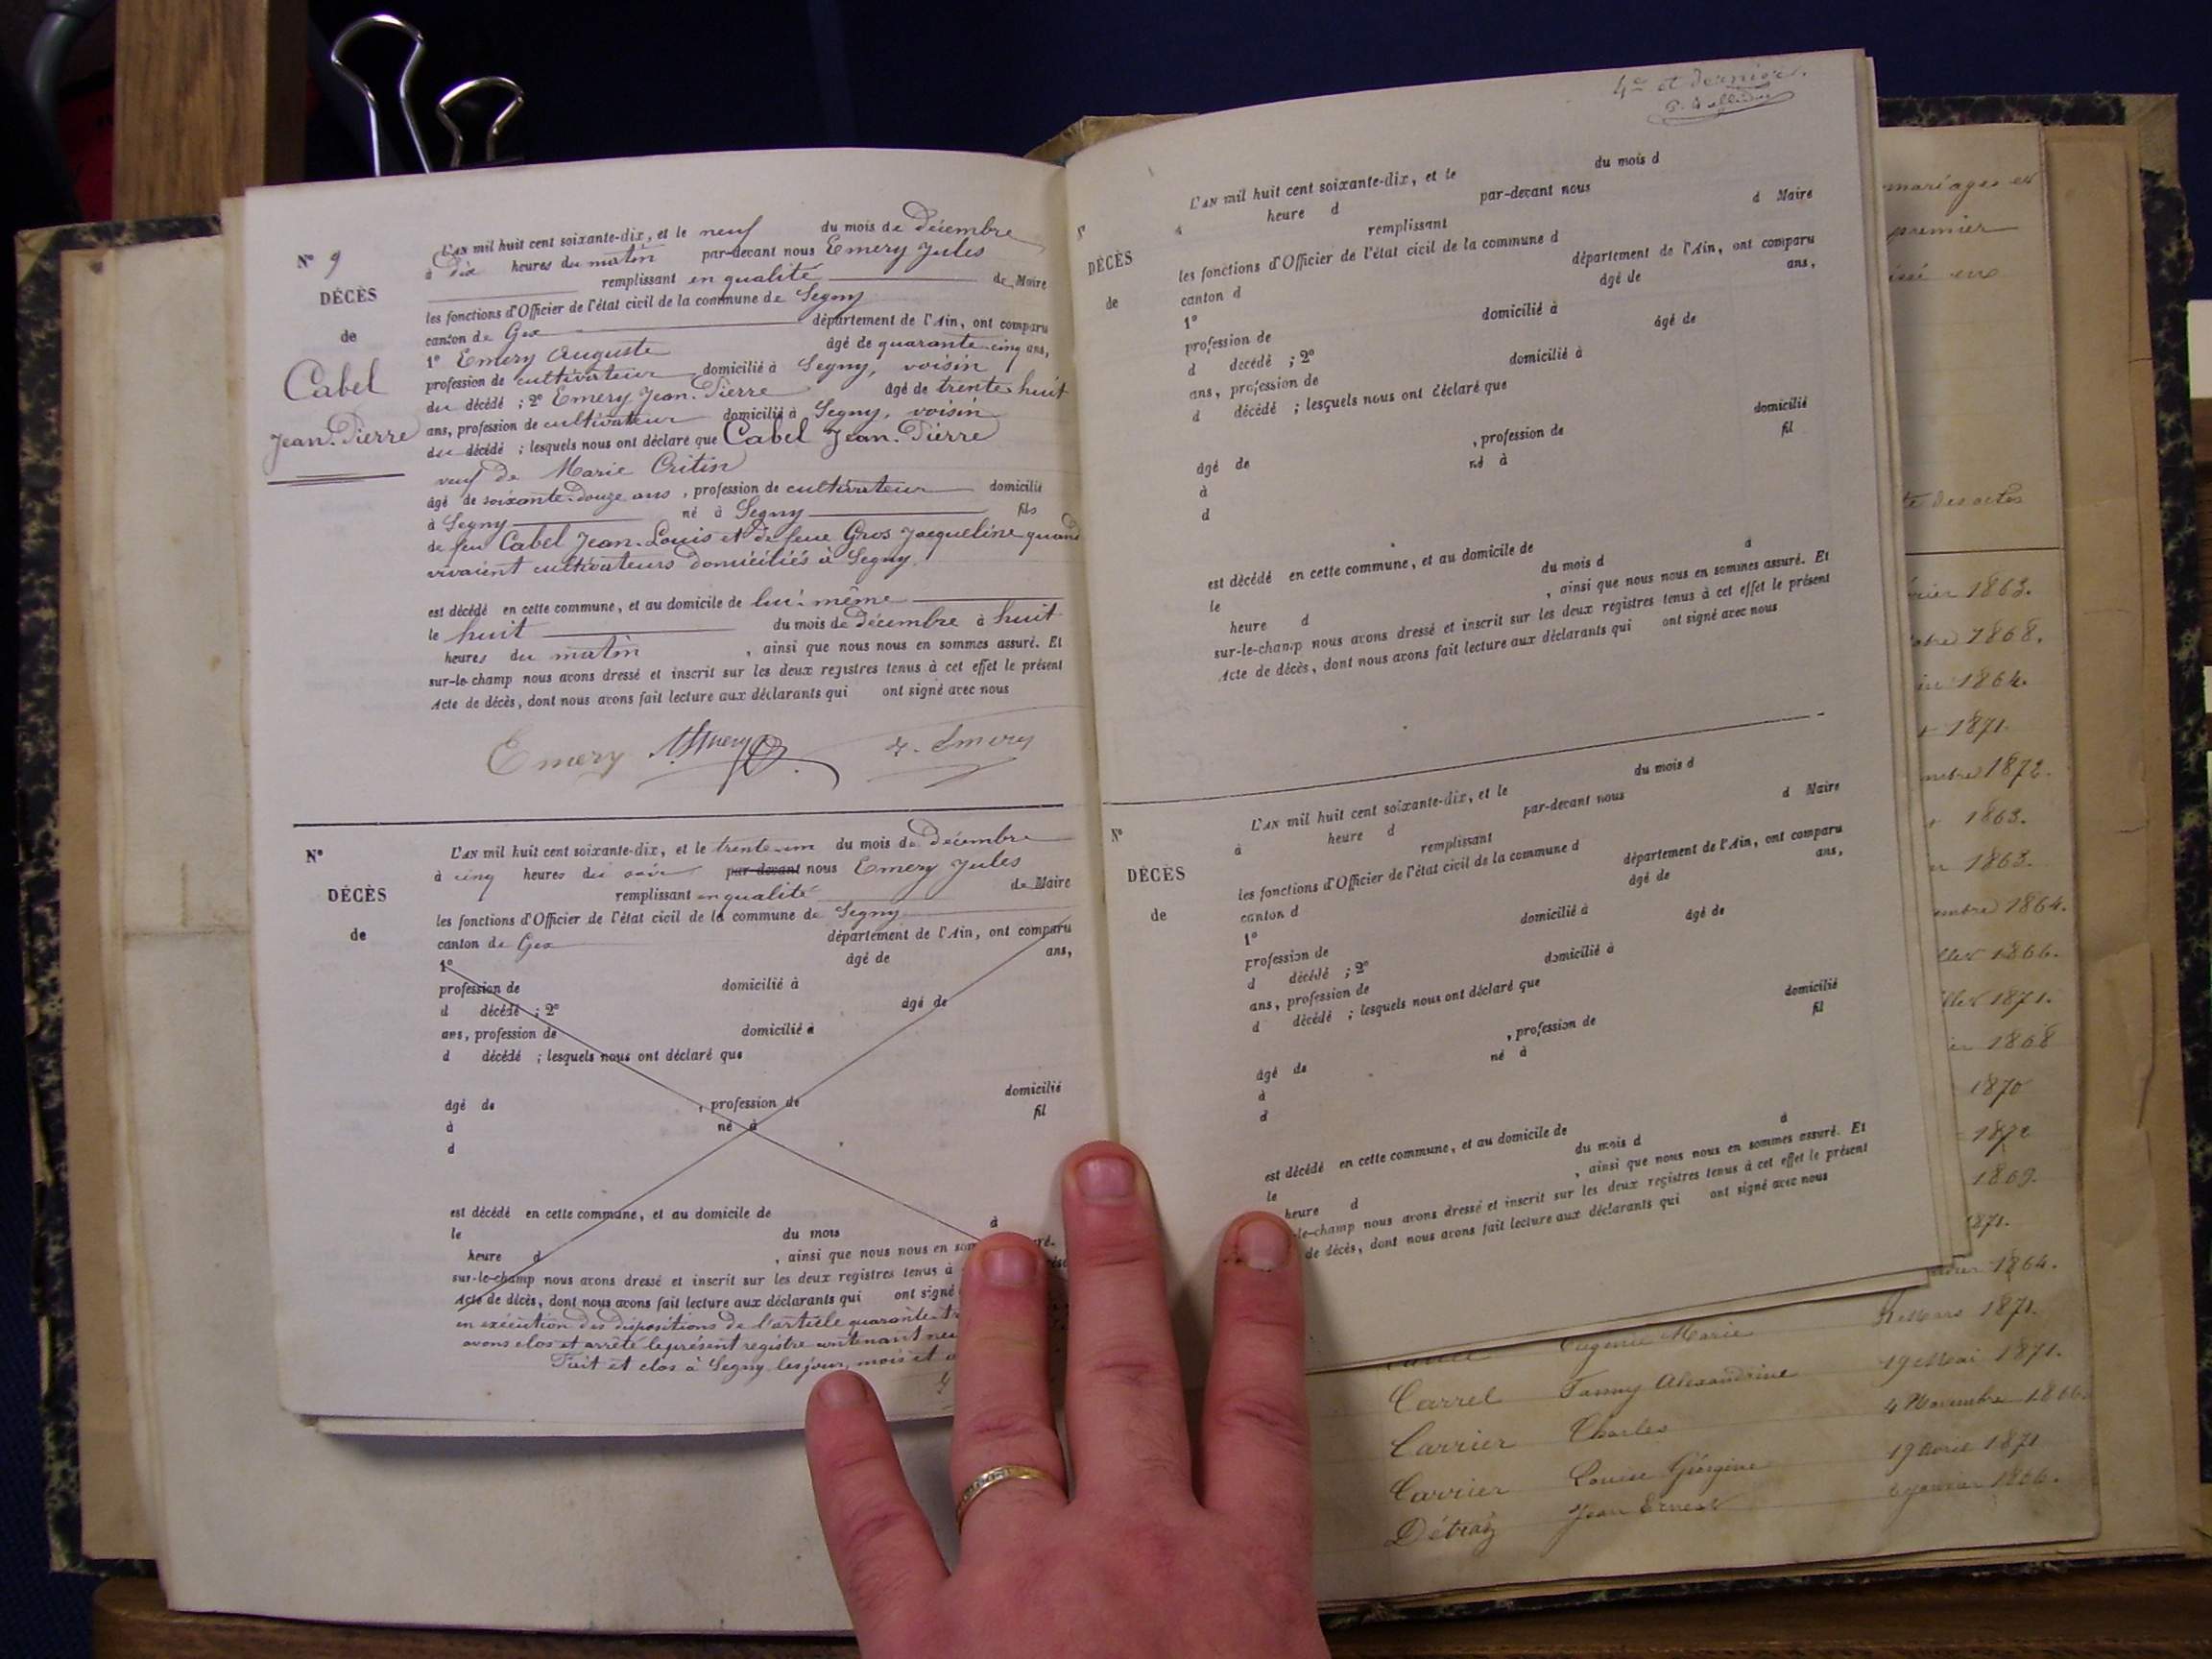 N° 9
DÉCÈS
de
Cabel
Jean-Pierre
L'AN mil huit cent soixante-dix, et le neuf du mois de Décembre
à dix heures du matin par-devant nous Emery Jules
remplissant en qualité de Maire
les fonctions d'Officier de l'état civil de la commune de Segny
canton de Gex département de l'Ain, ont comparu
1° Emery Auguste âgé de quarante-cinq ans,
profession de cultivateur domicilié à Segny, voisin
du décédé ; 2° Emery Jean-Pierre âgé de trente huit
ans, profession de cultivateur domicilié à Segny, voisin
du décédé ; lesquels nous ont déclaré que Cabel Jean-Pierre
veuf de Marie Critin
âgé de soixante-douze ans , profession de cultivateur domicilié
à Segny né à Segny fils
de feu Cabel Jean-Louis et de feue Gros Jacqueline quand
vivaient cultivateurs domiciliés à Segny
est décédé en cette commune, et au domicile de lui-même
le huit du mois de Décembre à huit
heures du matin , ainsi que nous nous en sommes assuré. Et
sur-le-champ nous avons dressé et inscrit sur les deux registres tenus à cet effet le présent
Acte de décès, dont nous avons fait lecture aux déclarants qui ont signé avec nous
Emery Emery J. Emery
N°
DÉCÈS
de
L'AN mil huit cent soixante-dix, et le trente-un du mois de Décembre
à cinq heures du soir par-devant nous Emery Jules
remplissant en qualité de Maire
les fonctions d'Officier de l'état civil de la commune de Segny
canton de Gex département de l'Ain, ont comparu
1° âgé de ans,
profession de domicilié à
d décédé ; 2° âgé de
ans, profession de domicilié à
d décédé ; lesquels nous ont déclaré que
âgé de , profession de domicilié
à né à fil
d
est décédé en cette commune, et au domicile de
le du mois à
heure d , ainsi que nous nous en
sur-le-champ nous avons dressé et inscrit sur les deux registres tenus à
Acte de décès, dont nous avons fait lecture aux déclarants qui ont signé
en exécution des dispositions de l'article quarante-
avons clos et arrêté le présent registre contenant
Fait et clos à Segny les jour, mois et
4e et dernière.
N°
DÉCÈS
de
L'AN mil huit cent soixante-dix, et le du mois d
à heure d par-devant nous
remplissant d Maire
les fonctions d'Officier de l'état civil de la commune d
canton d département de l'Ain, ont comparu
1° âgé de ans,
profession de domicilié à
d décédé ; 2° âgé de
ans, profession de domicilié à
d décédé ; lesquels nous ont déclaré que
âgé de , profession de domicilié
à né à fil
d
est décédé en cette commune, et au domicile de
le du mois d à
heure d , ainsi que nous nous en sommes assuré. Et
sur-le-champ nous avons dressé et inscrit sur les deux registres tenus à cet effet le présent
Acte de décès, dont nous avons fait lecture aux déclarants qui ont signé avec nous
N°
DÉCÈS
de
L'AN mil huit cent soixante-dix, et le du mois d
à heure d par-devant nous
remplissant d Maire
les fonctions d'Officier de l'état civil de la commune d
canton d département de l'Ain, ont comparu
1° âgé de ans,
profession de domicilié à
d décédé ; 2° âgé de
ans, profession de domicilié à
d décédé ; lesquels nous ont déclaré que
âgé de , profession de domicilié
à né à fil
d
est décédé en cette commune, et au domicile de
le du mois d à
heure d , ainsi que nous nous en sommes assuré. Et
-le-champ nous avons dressé et inscrit sur les deux registres tenus à cet effet le présent
de décès, dont nous avons fait lecture aux déclarants qui ont signé avec nous
mariages et
premier
te des actes
1863.
1868.
1864.
1871.
1872.
1863.
1863.
1864.
1866.
1871.
1868
1870
1872
1869.
1871.
1864.
Eugénie Marie Mars 1871.
Carrel Fanny Alexandrine 19 Mai 1871.
Carrier Charles 4 Novembre 1866.
Carrier Louise Géorgine 19 Avril 1871
Détraz Jean Ernest 6 Janvier 1866.